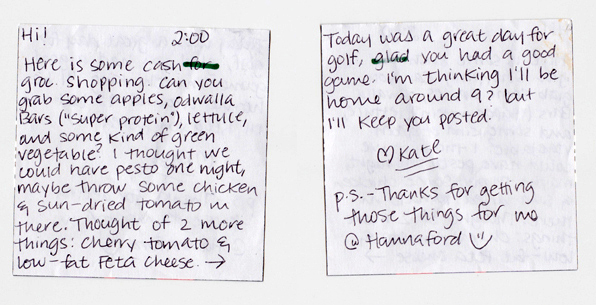 Hi! 2:00
Here is some cash for
groc. shopping. can you
grab some apples, odwalla
Bars ("super protein"), lettuce,
and some kind of green
vegetable? I thought we
could have pesto one night,
maybe throw some chicken
& sun-dried tomato in
there. Thought of 2 more
things: cherry tomato &
low-fat Feta cheese. →
Today was a great day for
golf, glad you had a good
game. I'm thinking I'll be
home around 9? but
I'll keep you posted.
♡Kate
p.s. - Thanks for getting
those things for me
@ Hannaford